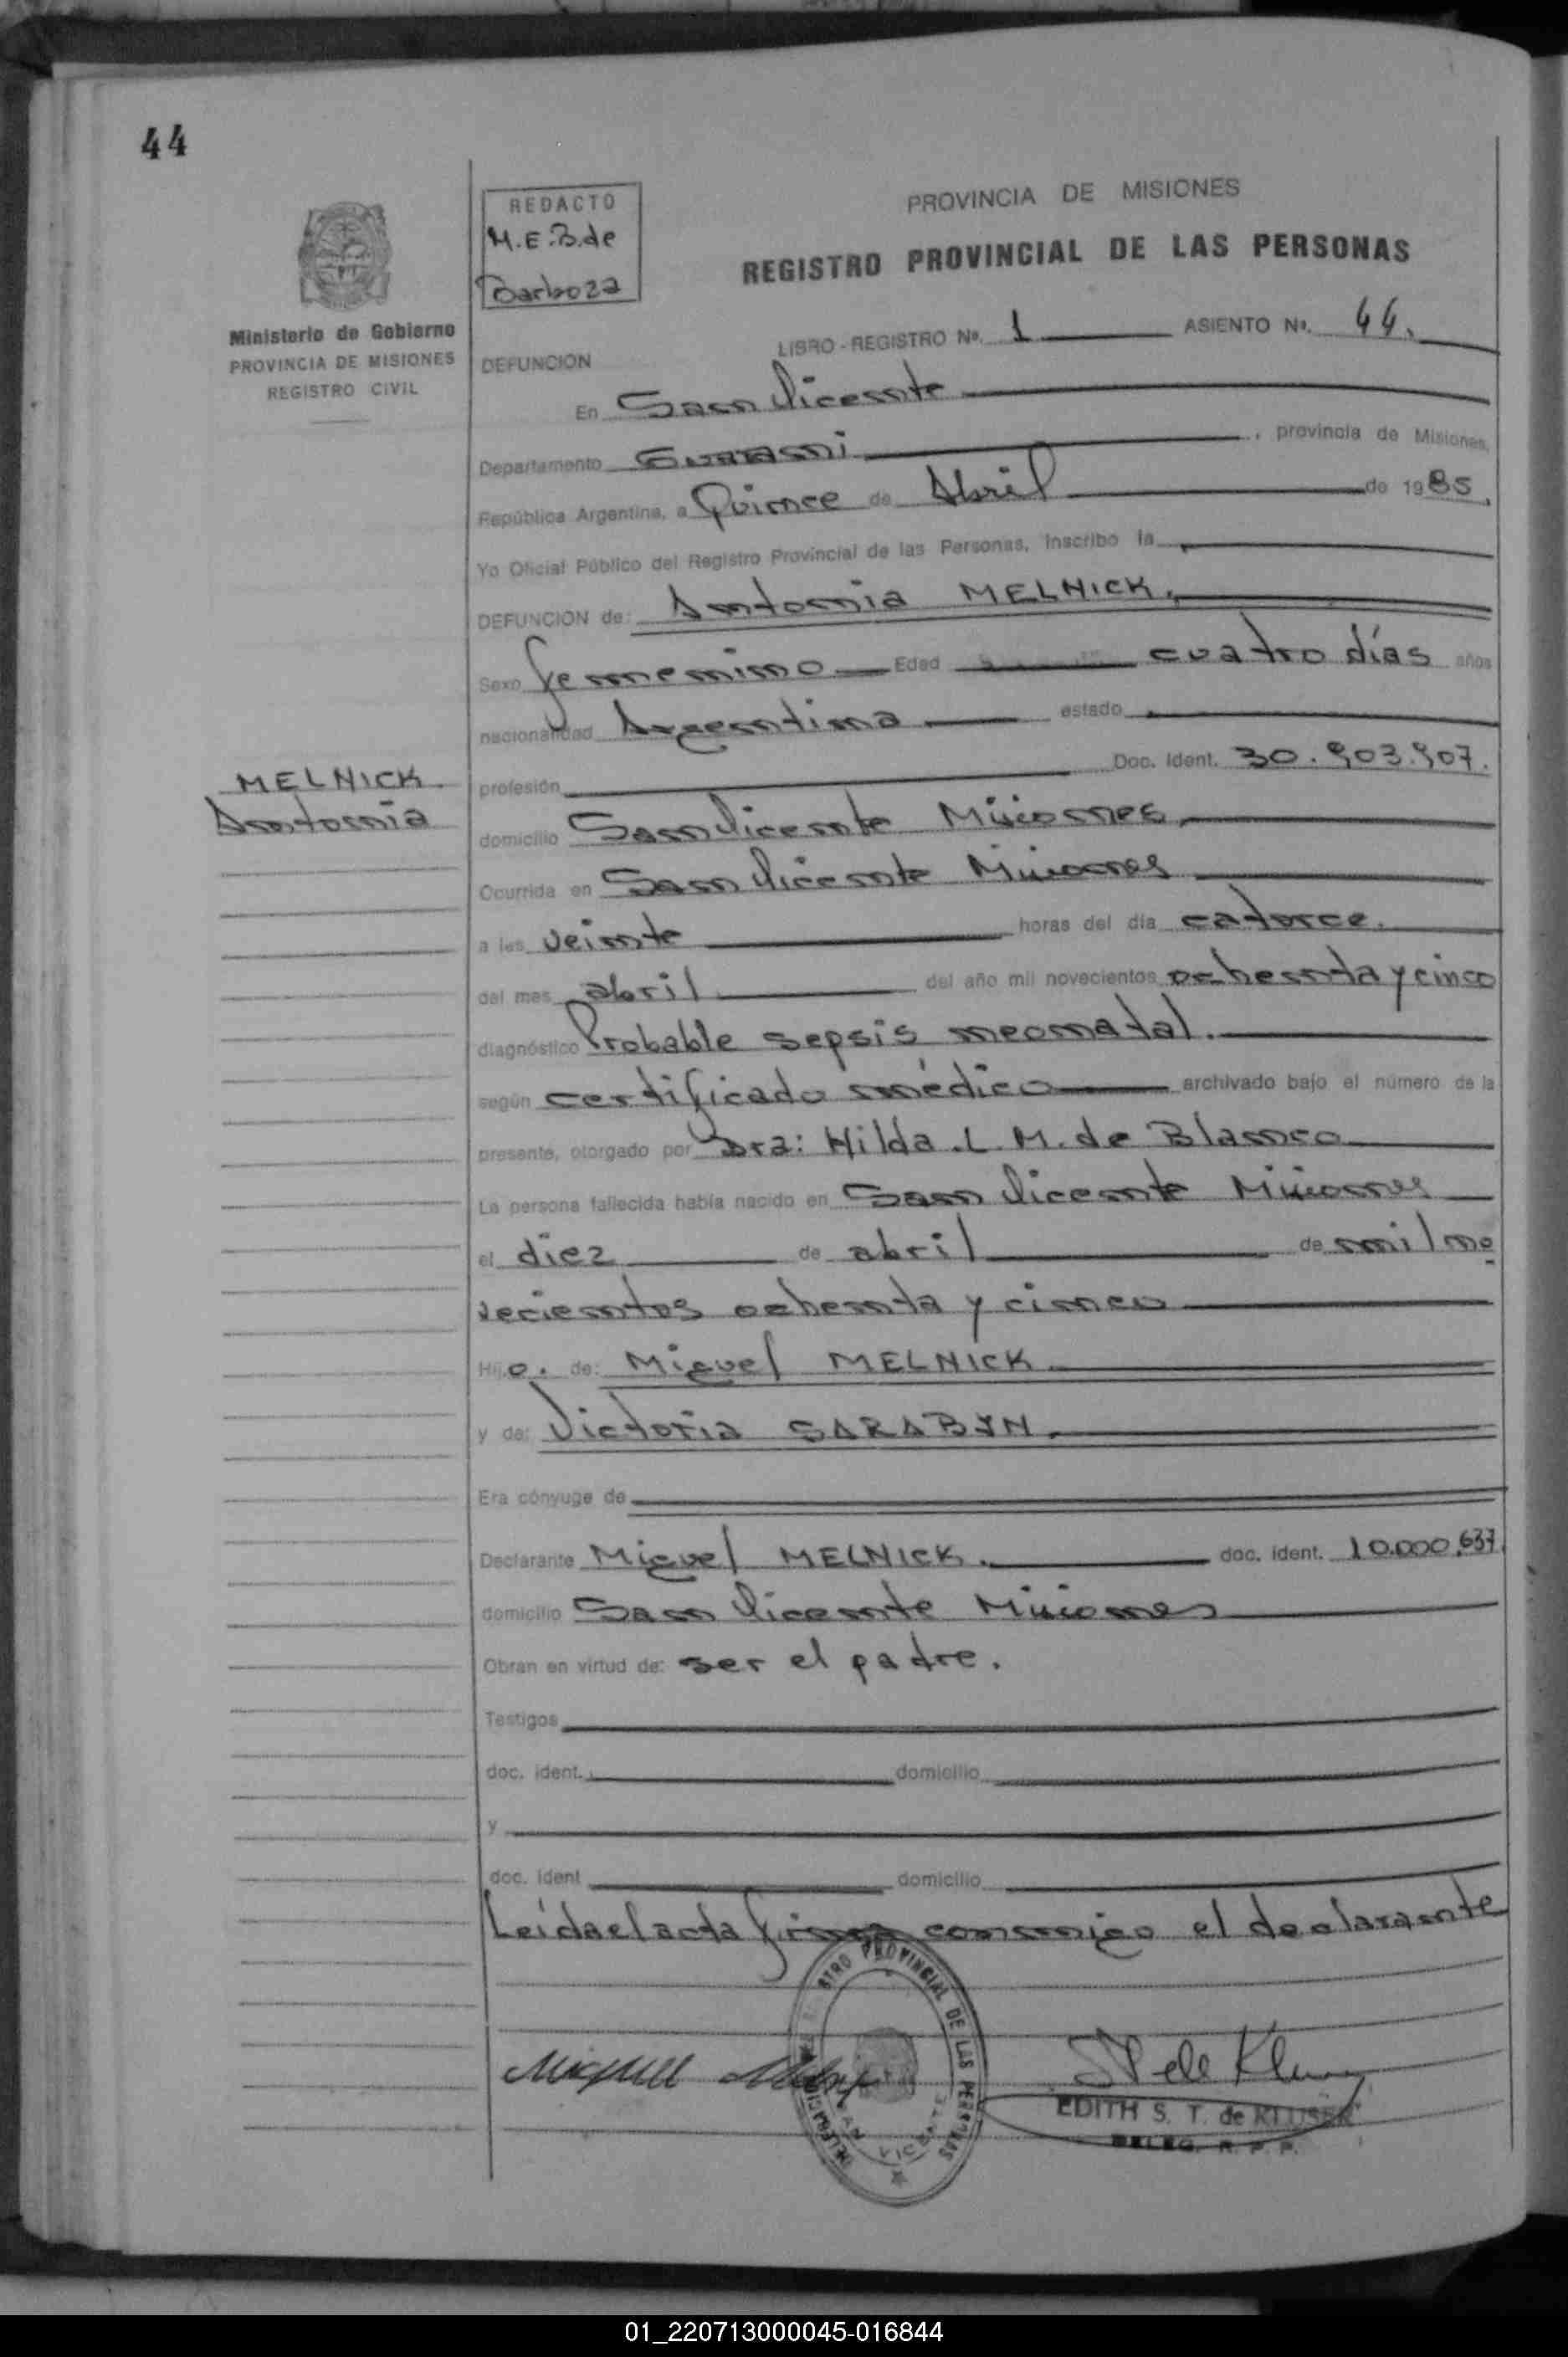 44
REDACTO
M.E.B.de
Barboza
PROVINCIA DE MISIONES
REGISTRO PROVINCIAL DE LAS PERSONAS
Ministerio de Gobierno
PROVINCIA DE MISIONES
REGISTRO CIVIL
LIBRO - REGISTRO Nº. 1 ASIENTO Nº. 44.
DEFUNCION
En San Vicente
Departamento Guarani , provincia de Misiones,
República Argentina, a Quince de Abril de 1985.
Yo Oficial Público del Registro Provincial de las Personas, inscribo la
DEFUNCION de: Antonia MELNICK.
Sexo femenino Edad cuatro días años
nacionalidad Argentina estado
profesión Doc. Ident. 30.903.907.
MELNICK.
Antonia
domicilio San Vicente Misiones
Ocurrida en San Vicente Misiones
a las veinte horas del día catorce.
del mes abril del año mil novecientos ochenta y cinco
diagnóstico Probable sepsis neonatal.
según certificado médico archivado bajo el número de la
presente, otorgado por Dra: Hilda .L. M. de Blanco
La persona fallecida había nacido en San Vicente Misiones
el diez de abril de mil no
vecientos ochenta y cinco
Hijo. de: Miguel MELNICK.
y de: Victoria SARABYN.
Era cónyuge de
Declarante Miguel MELNICK. doc. ident. 10.000.637.
domicilio San Vicente Misiones
Obran en virtud de: ser el padre.
Testigos
doc. ident. domicilio
y
doc. ident domicilio
Leída el acta firma conmigo el declarante
REGISTRO PROVINCIAL DE LAS PERSONAS
DELEGACION
SAN VICENTE
EDITH S. T. de KLUSER
DELEG. R. P. P.
01_220713000045-016844